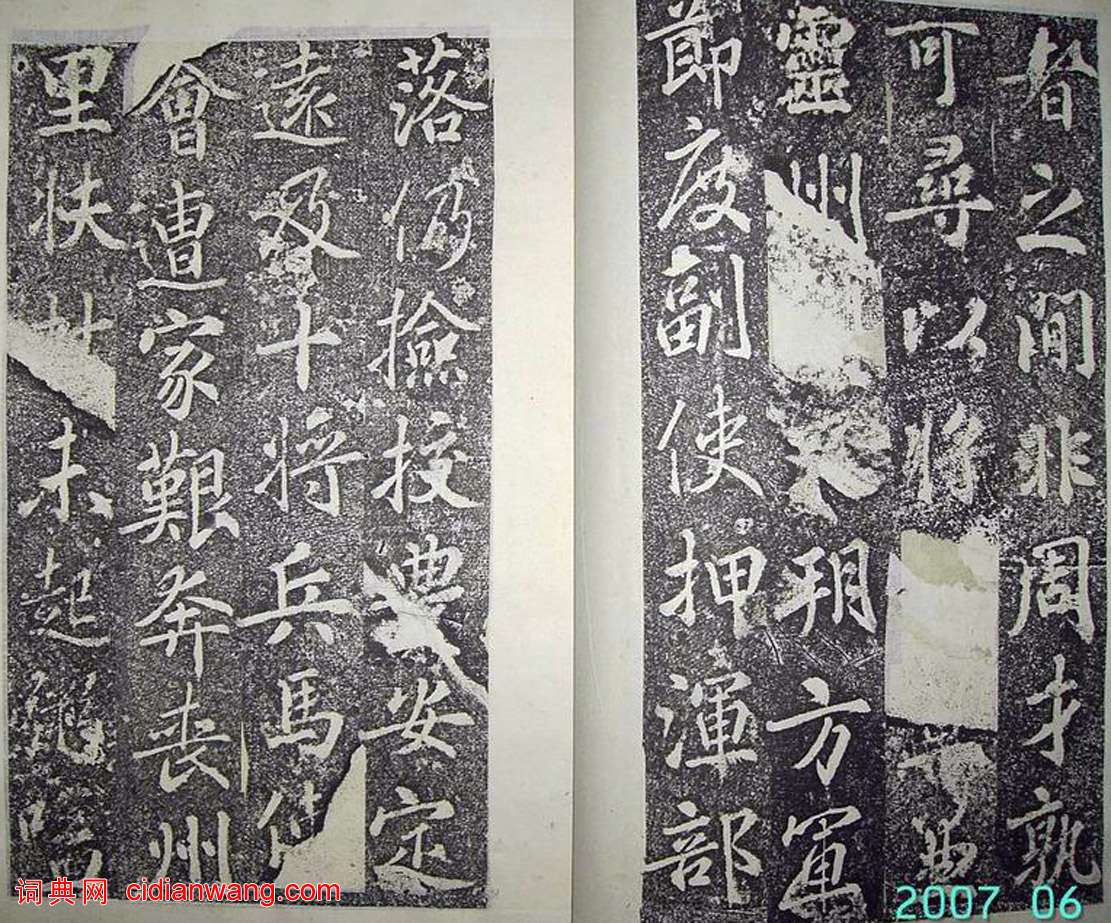 之間非周才孰
可尋以將
靈州 朔方軍
節度副使押渾部
落仍撿挍豊安定
遠及十將兵馬使
會遭家艱奔喪州
里扶杖未起
词典网 cidianwang.com
2007 06